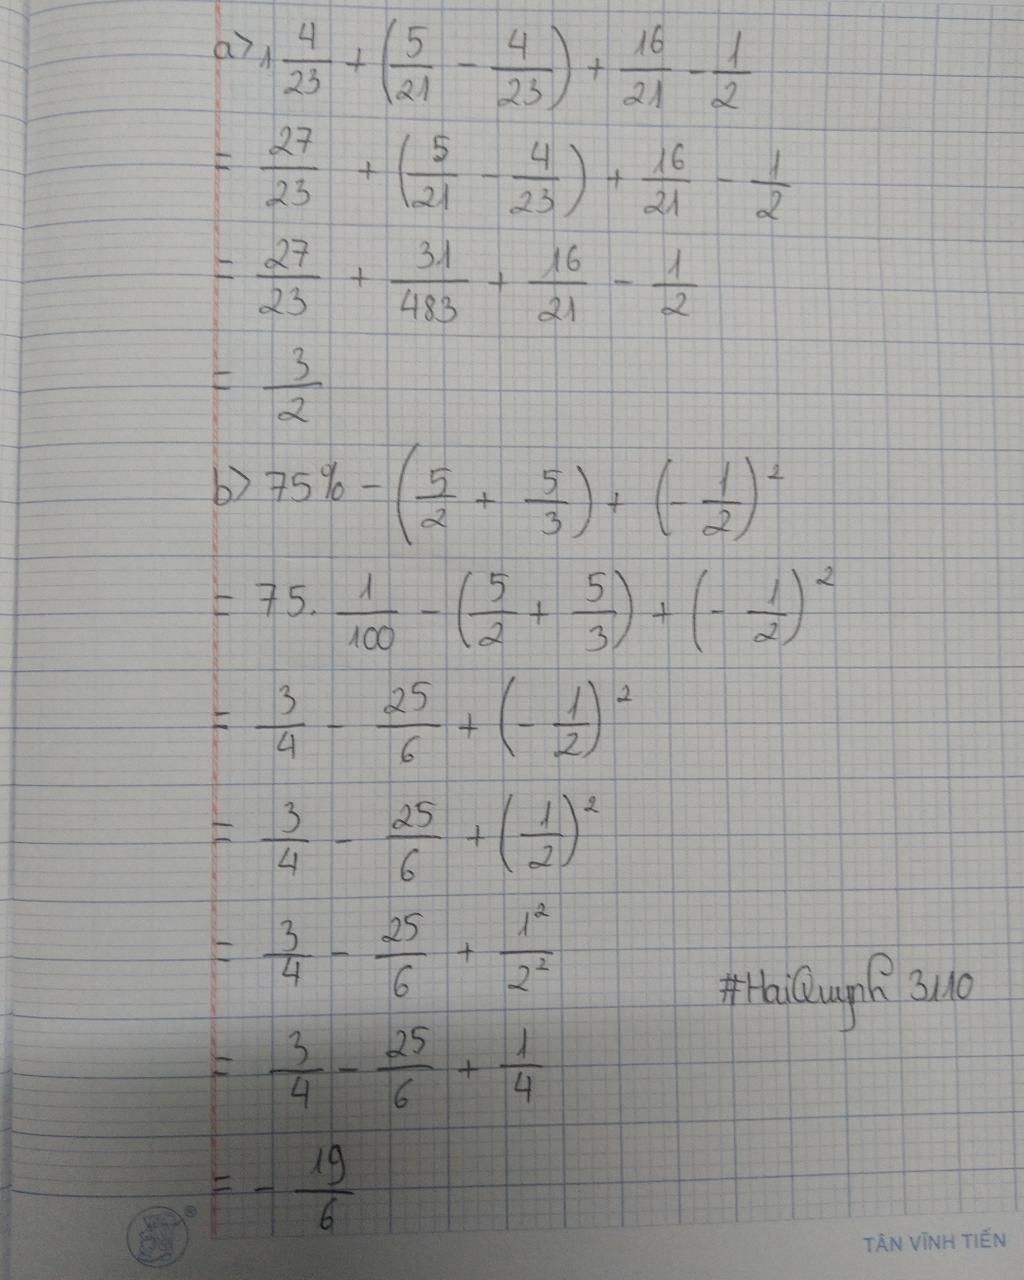 a> 1 4/23 + (5/21 - 4/23) + 16/21 - 1/2
= 27/23 + (5/21 - 4/23) + 16/21 - 1/2
= 27/23 + 31/483 + 16/21 - 1/2
= 3/2
b> 75% - (5/2 + 5/3) + (- 1/2)²
= 75. 1/100 - (5/2 + 5/3) + (- 1/2)²
= 3/4 - 25/6 + (- 1/2)²
= 3/4 - 25/6 + (1/2)²
= 3/4 - 25/6 + 1²/2²
#HaiQuynh 3110
= 3/4 - 25/6 + 1/4
= - 19/6
®
TÂN VĨNH TIẾN